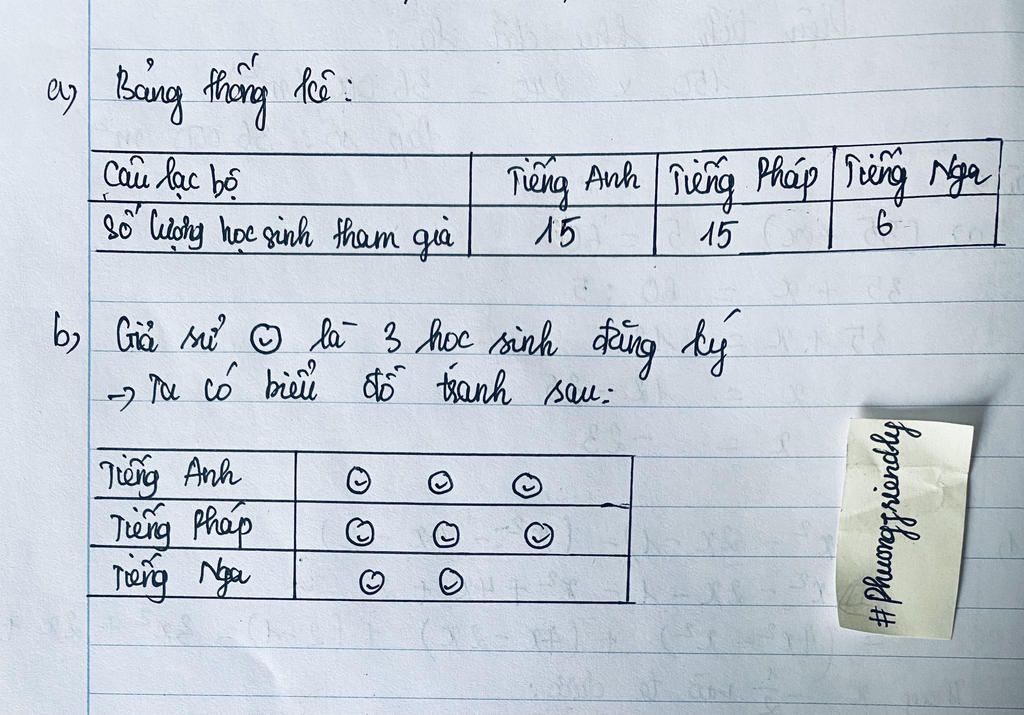 a) Bảng thống kê:
Câu lạc bộ Tiếng Anh Tiếng Pháp Tiếng Nga
Số lượng học sinh tham gia 15 15 6
b) Giả sử là 3 học sinh đăng ký
→ Ta có biểu đồ tranh sau:
Tiếng Anh
Tiếng Pháp
Tiếng Nga
#phuongfriendly